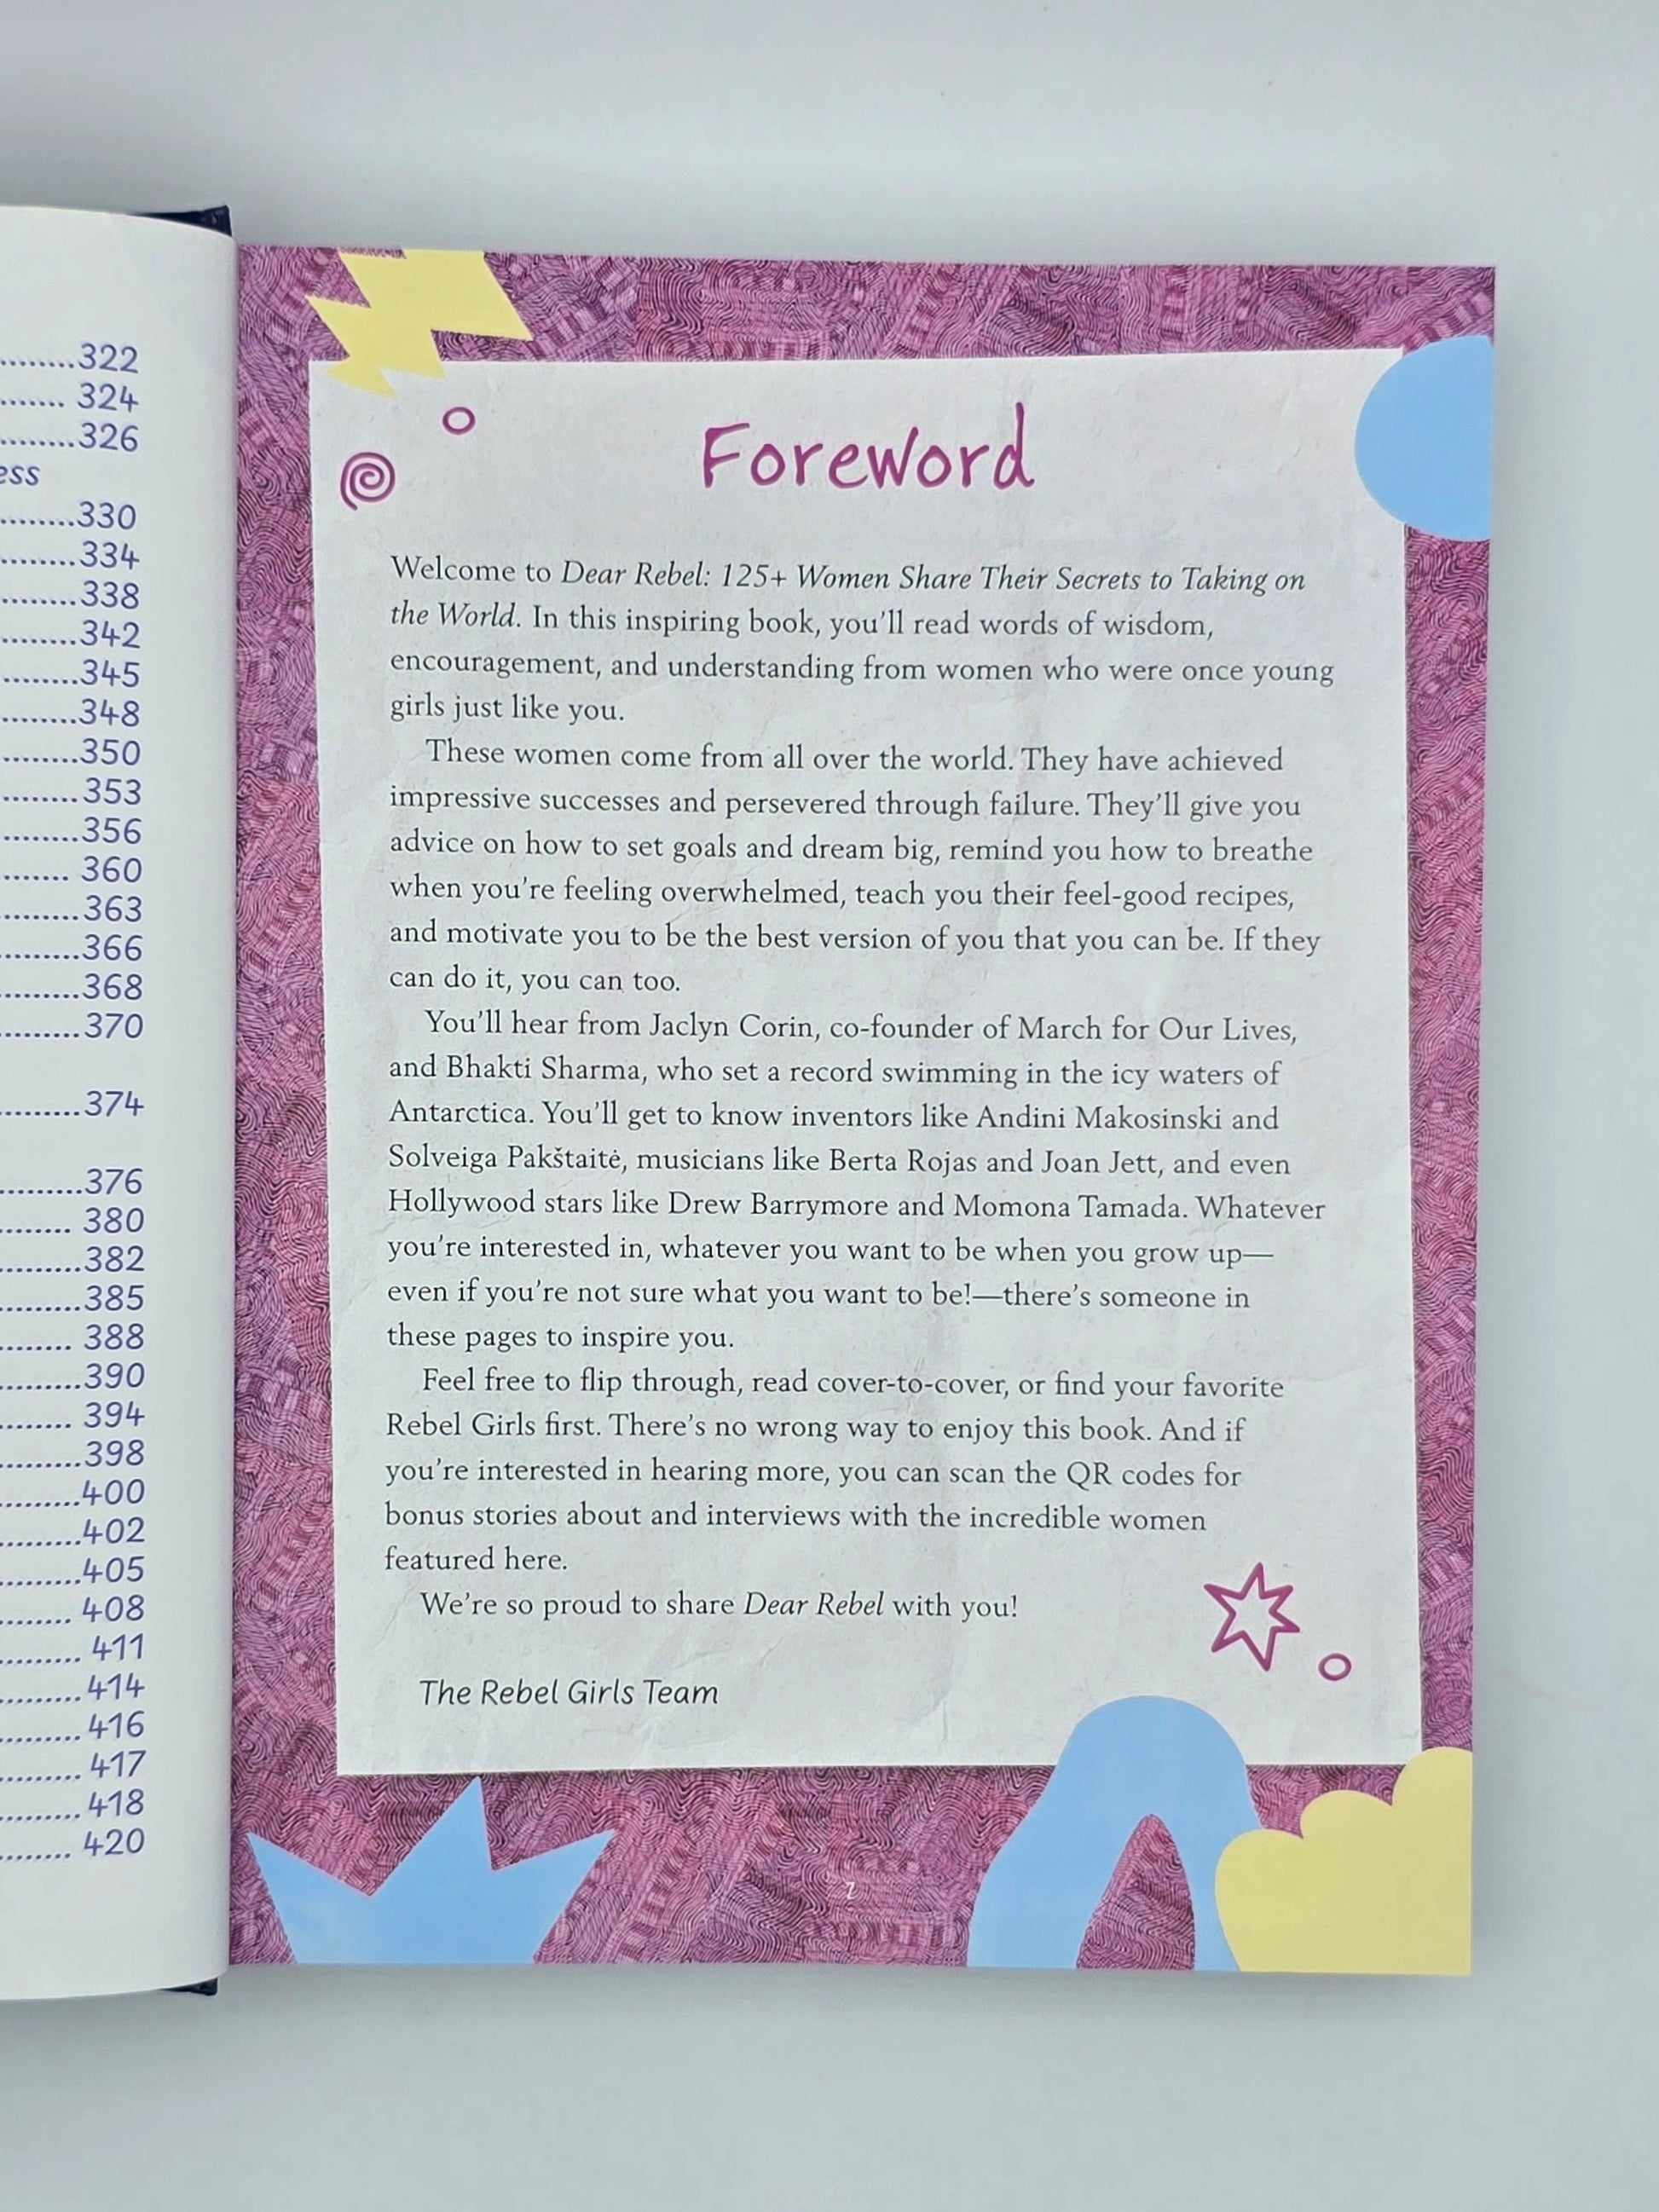 ........322
....... 324
........326
ess
........330
........334
........338
........342
........345
........348
........350
........353
........356
....... 360
........363
........366
........368
........370
........374
.........376
........ 380
.........382
.........385
........ 388
.........390
........ 394
.........398
.........400
.........402
.........405
........ 408
......... 411
.........414
......... 416
......... 417
......... 418
........ 420
Foreword
Welcome to Dear Rebel: 125+ Women Share Their Secrets to Taking on
the World. In this inspiring book, you'll read words of wisdom,
encouragement, and understanding from women who were once young
girls just like you.
These women come from all over the world. They have achieved
impressive successes and persevered through failure. They'll give you
advice on how to set goals and dream big, remind you how to breathe
when you're feeling overwhelmed, teach you their feel-good recipes,
and motivate you to be the best version of you that you can be. If they
can do it, you can too.
You'll hear from Jaclyn Corin, co-founder of March for Our Lives,
and Bhakti Sharma, who set a record swimming in the icy waters of
Antarctica. You'll get to know inventors like Andini Makosinski and
Solveiga Pakštaitė, musicians like Berta Rojas and Joan Jett, and even
Hollywood stars like Drew Barrymore and Momona Tamada. Whatever
you're interested in, whatever you want to be when you grow up—
even if you're not sure what you want to be!—there's someone in
these pages to inspire you.
Feel free to flip through, read cover-to-cover, or find your favorite
Rebel Girls first. There's no wrong way to enjoy this book. And if
you're interested in hearing more, you can scan the QR codes for
bonus stories about and interviews with the incredible women
featured here.
We're so proud to share Dear Rebel with you!
The Rebel Girls Team